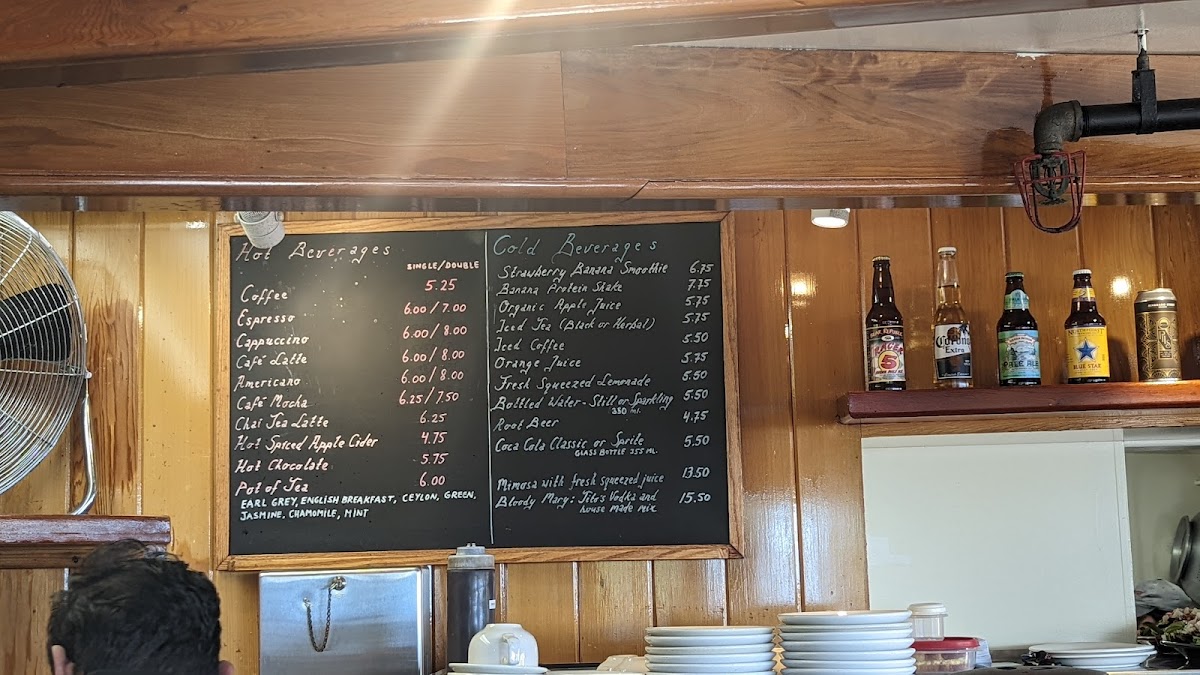 Hot Beverages
SINGLE/DOUBLE
Coffee 5.25
Espresso 6.00/7.00
Cappuccino 6.00/8.00
Café Latte 6.00/8.00
Americano 6.00/8.00
Café Mocha 6.25/7.50
Chai Tea Latte 6.25
Hot Spiced Apple Cider 4.75
Hot Chocolate 5.75
Pot of Tea 6.00
EARL GREY, ENGLISH BREAKFAST, CEYLON, GREEN,
JASMINE, CHAMOMILE, MINT
Cold Beverages
Strawberry Banana Smoothie 6.75
Banana Protein Shake 7.75
Organic Apple Juice 5.75
Iced Tea (Black or Herbal) 5.75
Iced Coffee 5.50
Orange Juice 5.75
Fresh Squeezed Lemonade 5.50
Bottled Water - Still or Sparkling 5.50
350 ml.
Root Beer 4.75
Coca Cola Classic or Sprite 5.50
GLASS BOTTLE 355 ML.
Mimosa with fresh squeezed juice 13.50
Bloody Mary: Tito's Vodka and 15.50
house made mix
5
Corona
Extra
PALE ALE
BLUE STAR